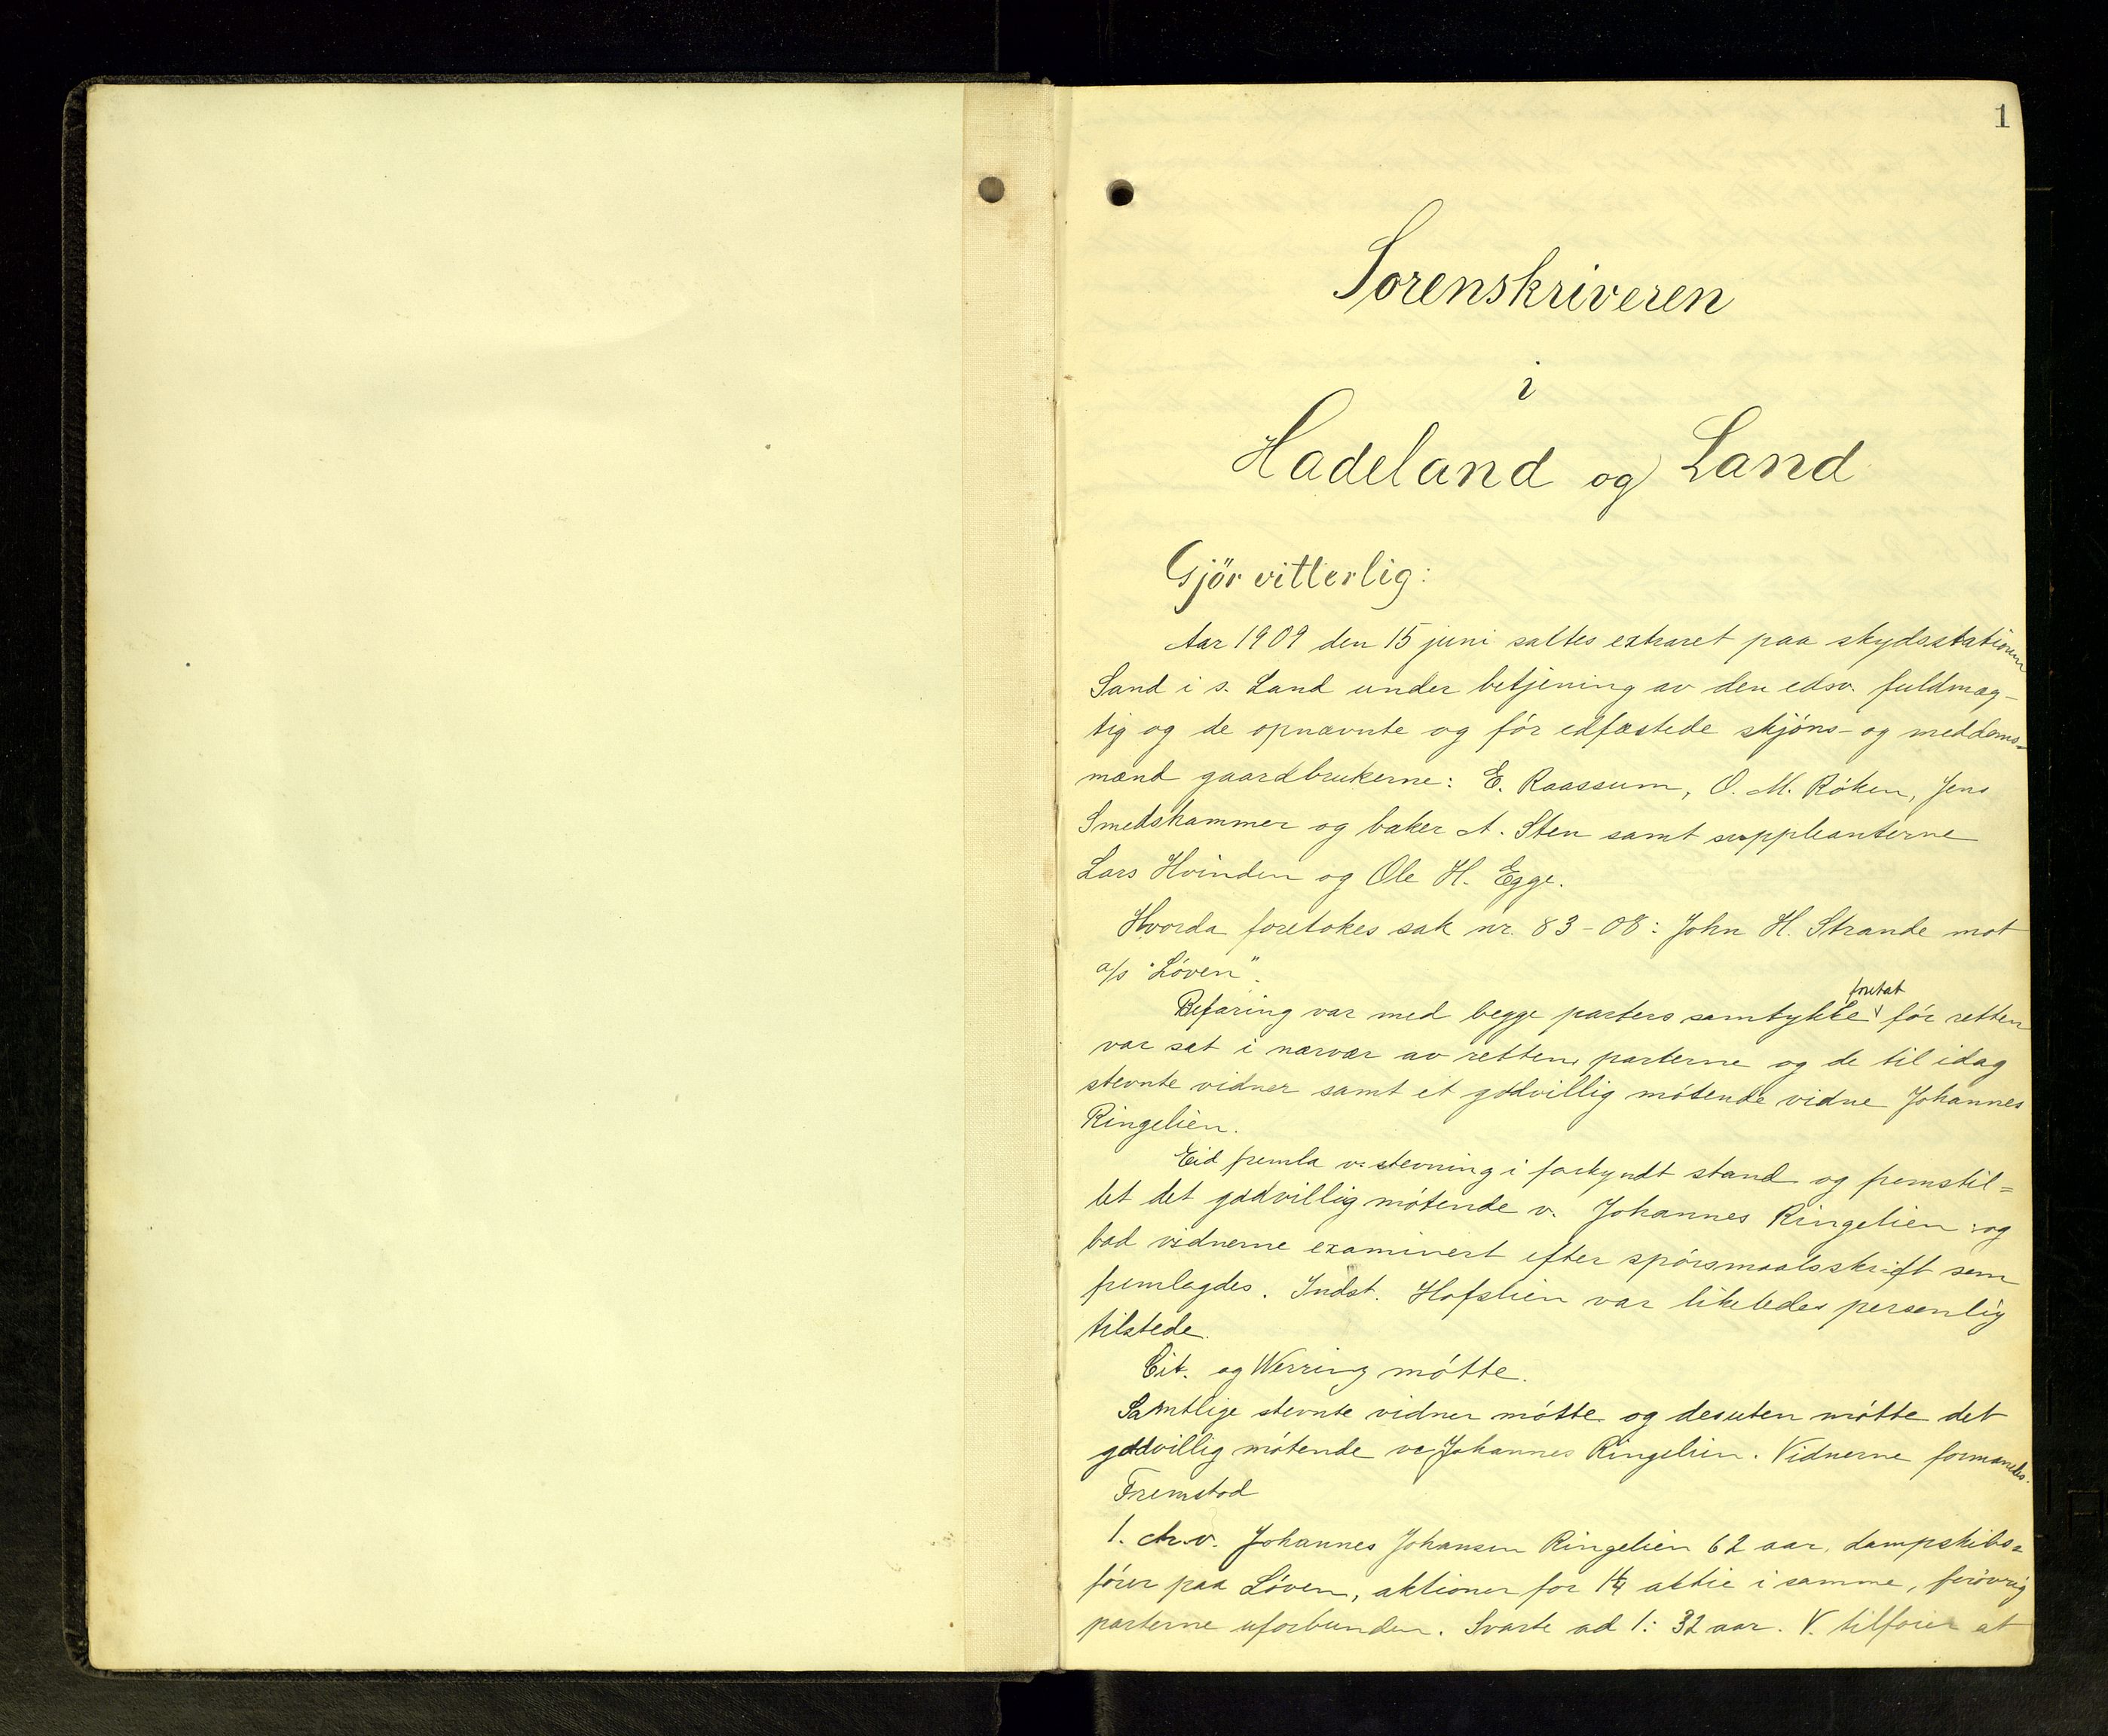 1
Sorenskriveren
i
Hadeland og Land
Gjör vitterlig:
Aar 1909 den 15 juni sattes extraret paa skydsstationen
Sand i s. Land under betjening av den edsv. fuldmæg-
tig og de opnævnte og før edfæstede skjøns- og meddoms-
mænd gaardbrukerne: E. Raassum, O. M. Røken, Jens
Smedshammer og baker A. Sten samt suppleanterne
Lars Hvinden og Ole H. Egge.
Hvorda foretokes sak nr. 83-08: John H. Strande mot
a/s "Løven".
Befaring var med begge parters samtykke foretat før retten
var sat i nærvær av retten, parterne og de til idag
stevnte vidner samt et godvillig møtende vidne Johannes
Ringelien.
Eid fremla v. stevning i forkyndt stand og fremstil=
let det godvillig møtende v. Johannes Ringelien og
bad vidnerne examinert efter spørsmaalsskrift som
fremlagdes. Indst. Hofslien var likeledes personlig
tilstede.
Cit. og Werring møtte.
Samtlige stevnte vidner møtte og desuten møtte det
godvillig møtende v. Johannes Ringelien. Vidnerne formanedes.
Fremstod
1. v. Johannes Johansen Ringelien 62 aar, dampskibs=
fører paa Løven, aktionær for aktie i samme, forøvrig
parterne uforbunden. Svarte ad 1: 32 aar. V. tilføier at